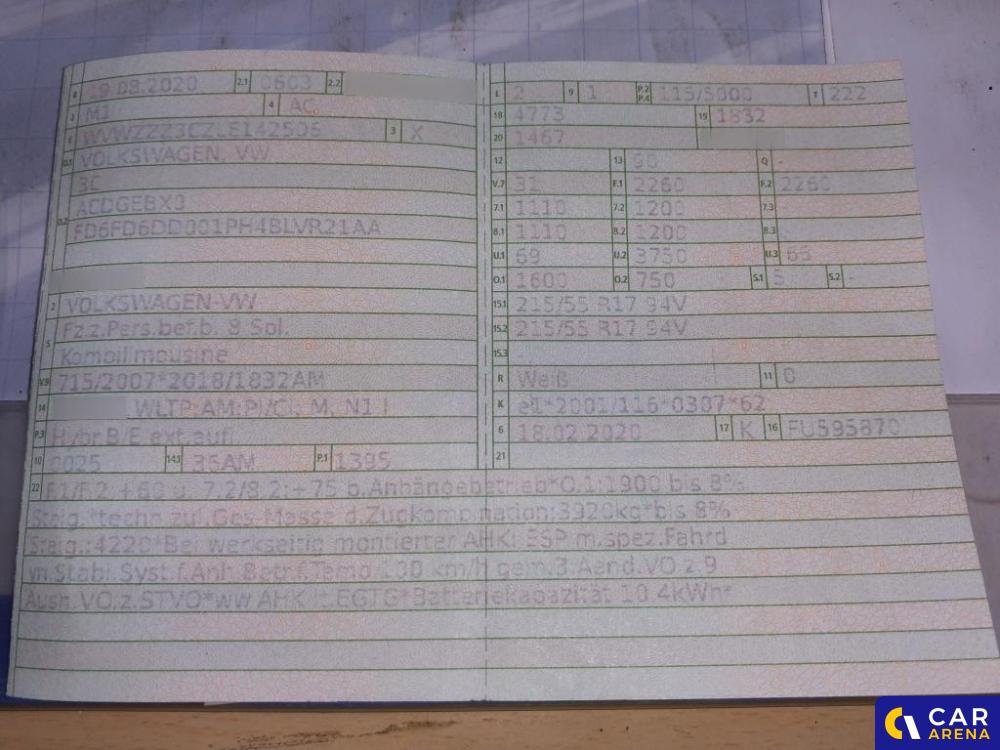 B 19.08.2020 2.1 0603 2.2
J M1 4 AC
E WVWZZZ3CZLE142506 3 X
D.1 VOLKSWAGEN, VW
3C
D.2 ACDGEBX0
FD6FD6DD001PH4BLVR21AA
2 VOLKSWAGEN-VW
5 Fz.z.Pers.bef.b. 8 Spl.
Kombilimousine
V.9 715/2007*2018/1832AM
14 WLTP:AM:PI/CI, M, N1 I
P.3 Hybr.B/E ext.auf
10 0025 14.1 36AM P.1 1395
L 2 9 1 P.2 P.4 115/5000 T 222
18 4773 19 1832
20 1467
12 13 90 Q -
V.7 31 F.1 2260 F.2 2260
7.1 1110 7.2 1200 7.3 -
8.1 1110 8.2 1200 8.3 -
U.1 69 U.2 3750 U.3 65
O.1 1600 O.2 750 S.1 5 S.2 -
15.1 215/55 R17 94V
15.2 215/55 R17 94V
15.3
R Weiß 11 0
K e1*2001/116*0307*62
6 18.02.2020 17 K 16 FU595870
21
22 F.1/F.2: +60 u. 7.2/8.2:+75 b.Anhängebetrieb*O.1:1900 bis 8%
Steig.*techn.zul.Ges-Masse d.Zugkombination:3920kg*bis 8%
Steig.:4220*Bei werkseitig montierter AHK: ESP m.spez.Fahrd
yn.Stabi.Syst.f.Anh.Betr.f.Tempo 100 km/h gem.3.Aend.VO.z.9
Ausn.VO.z.STVO*ww.AHK lt.EGTG*Batteriekapazität 10.4kWh*
CAR
ARENA